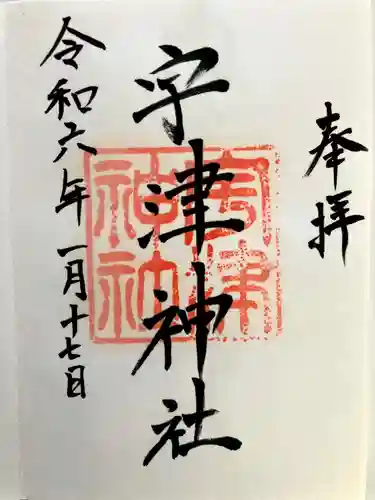 奉拝
宇津神社
宇津神社
令和六年一月十七日